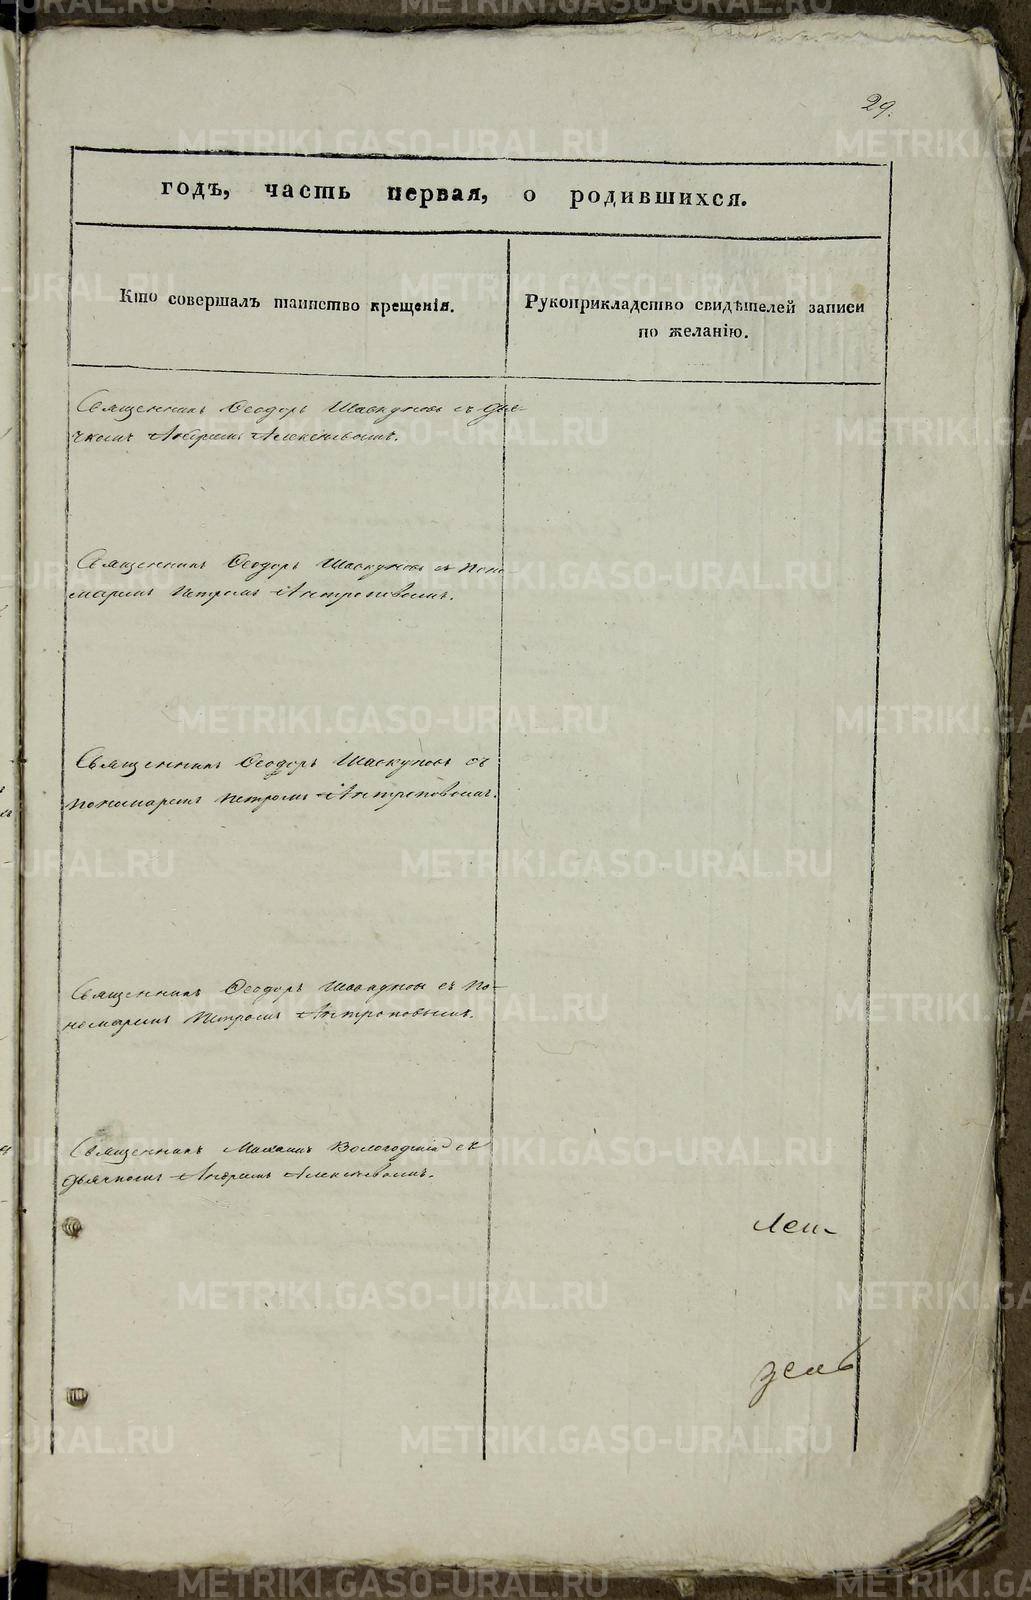 29.
годъ, часть первая, о родившихся.
Кто совершалъ таинство крещенія.
Рукоприкладство свидѣтелей записи
по желанію.
Священникъ Ѳеодоръ Шаскуновъ съ дья-
чкомъ Андреемъ Алексѣевымъ.
Священникъ Ѳеодоръ Шаскуновъ съ поно-
маремъ Петромъ Антроповымъ.
Священникъ Ѳеодоръ Шаскуновъ съ
пономаремъ Петромъ Антроповымъ.
Священникъ Ѳеодоръ Шаскуновъ съ по-
номаремъ Петромъ Антроповымъ.
Священникъ Вологодскій съ
дьячкомъ Андреемъ Алексѣевымъ.
METRIKI.GASO-URAL.RU